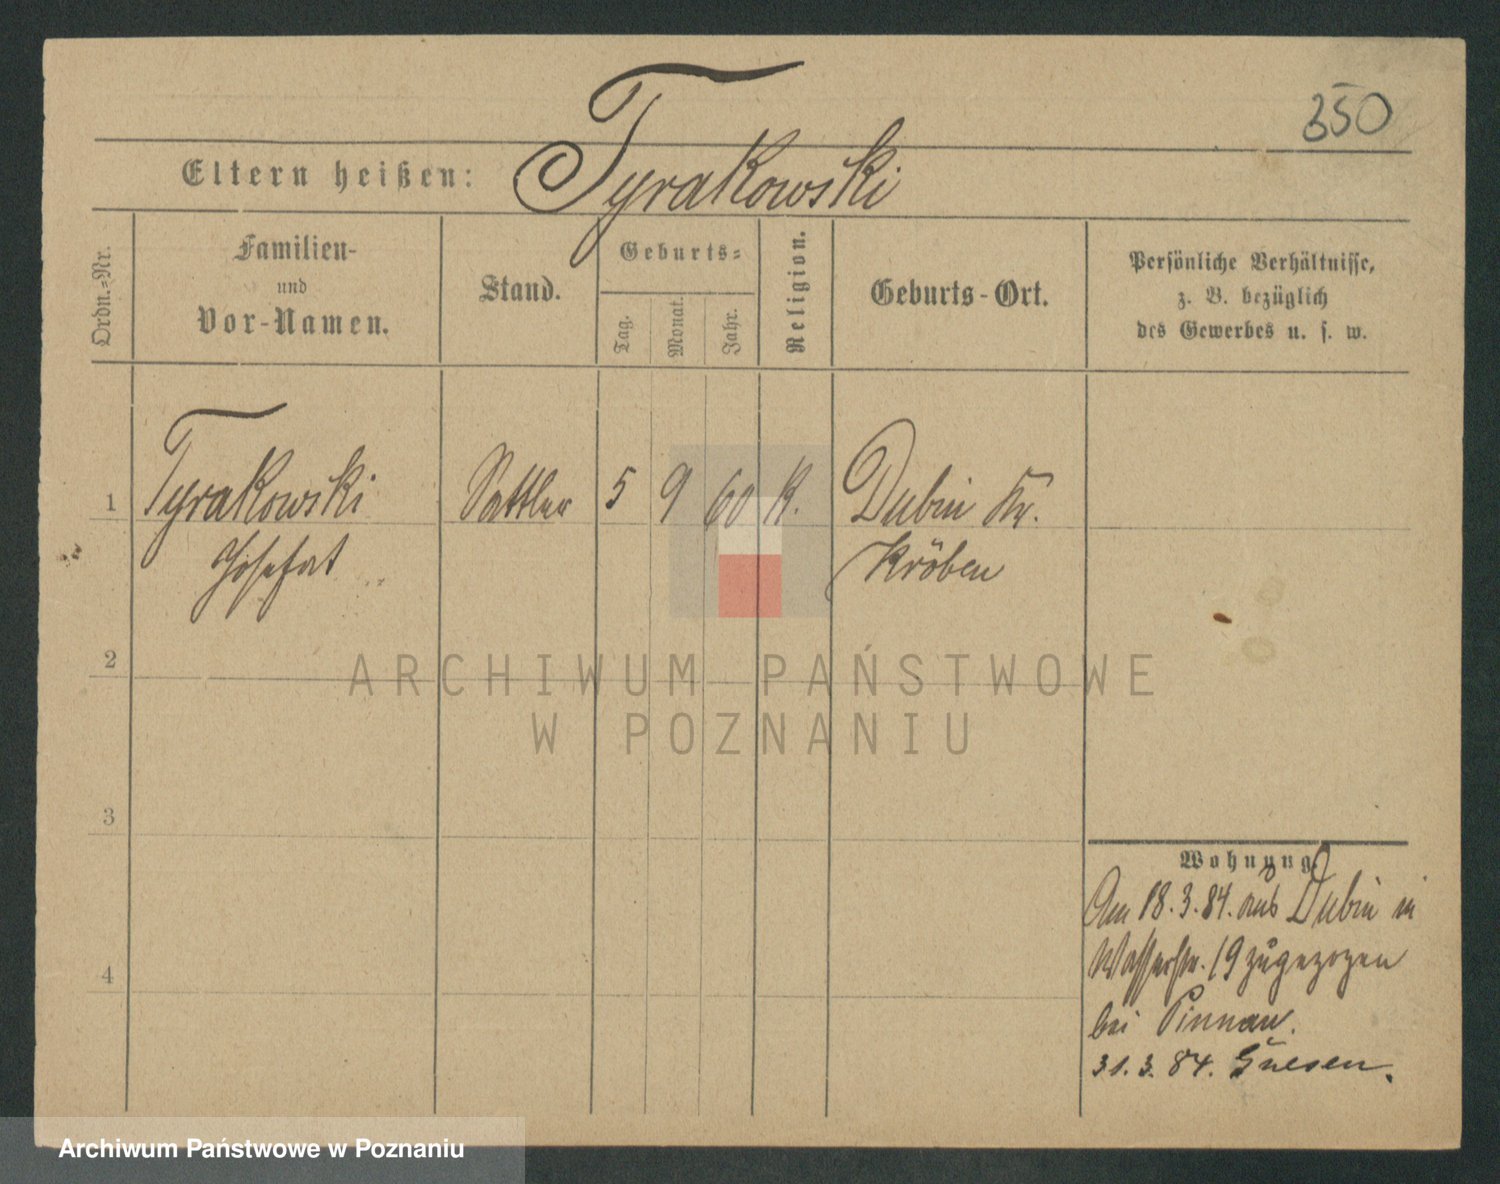 350
Eltern heißen: Tyrakowski
Ordn.-Nr.
Familien-
und
Vor-Namen.
Stand.
Geburts-
Tag.
Monat.
Jahr.
Religion.
Geburts-Ort.
Persönliche Verhältnisse,
z. B. bezüglich
des Gewerbes u. s. w.
1 Tyrakowski Sattler 5 9 60 K. Dubin Kr.
Josefat Kröben
2
ARCHIWUM PAŃSTWOWE
W POZNANIU
3
Wohnung
Am 18.3.84. aus Dubin in
Wasserstr. 19 zugezogen
4
bei Pinnau.
31.3.84. Gnesen.
Archiwum Państwowe w Poznaniu